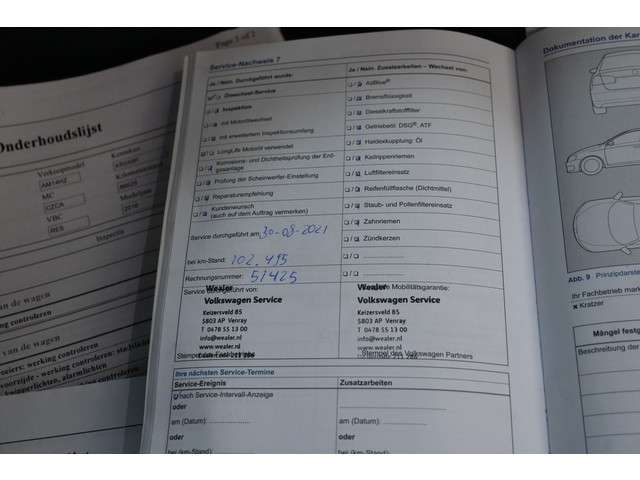 Page 1 of 2
Onderhoudslijst
Verkoopmodel
AM14H2
MC
CZCA
VBC
RES
Kenteken
Inspectie
an de wagen
van de wagen
Service-Nachweis 7
Ja / Nein Durchgeführt wurde:
Ölwechsel-Service
Inspektion
mit Motorölwechsel
mit erweitertem Inspektionsumfang
LongLife Motoröl verwendet
Korrosions- und Dichtheitsprüfung der Erd-
gasanlage
Prüfung der Scheinwerfer-Einstellung
Reparaturempfehlung
Kundenwunsch
(auch auf dem Auftrag vermerken)
Service durchgeführt am: 30-08-2021
bei km-Stand: 102.415
Rechnungsnummer: 51425
Service durchgeführt von:
Wealer
Volkswagen Service
Keizersveld 85
5803 AP Venray
T 0478 55 13 00
info@wealer.nl
www.wealer.nl
Ja / Nein Zusatzarbeiten – Wechsel von:
AdBlue®
Bremsflüssigkeit
Dieselkraftstofffilter
Getriebeöl: DSG®, ATF
Haldexkupplung: Öl
Keilrippenriemen
Luftfiltereinsatz
Reifenfüllflasche (Dichtmittel)
Staub- und Pollenfiltereinsatz
Zahnriemen
Zündkerzen
Mobilitätsgarantie:
Wealer
Volkswagen Service
Keizersveld 85
5803 AP Venray
T 0478 55 13 00
info@wealer.nl
www.wealer.nl
Stempel des Volkswagen Partners
Ihre nächsten Service-Termine
Service-Ereignis
Zusatzarbeiten
nach Service-Intervall-Anzeige
oder
am (Datum):
oder
bei (km-Stand)
oder
am (Datum):
oder
bei (km-Stand):
Dokumentation der Kar
Abb. 9 Prinzipdarste
Ihr Fachbetrieb mark
x Kratzer
Mängel festg
Beschreibung der